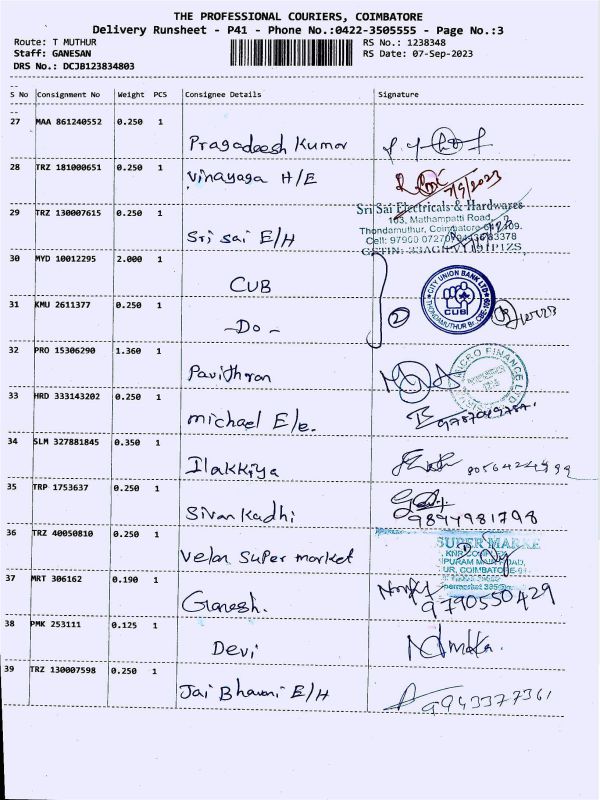 THE PROFESSIONAL COURIERS, COIMBATORE
Delivery Runsheet - P41 - Phone No.:0422-3505555 - Page No.:3
Route: T MUTHUR RS No.: 1238348
Staff: GANESAN RS Date: 07-Sep-2023
DRS No.: DCJB123834803
S No Consignment No Weight PCS Consignee Details Signature
27 MAA 861240552 0.250 1
Pragadeesh Kumar
28 TRZ 181000651 0.250 1
Vinayaga H/E 7/9/2023
29 TRZ 130007615 0.250 1
Sri Sai Electricals & Hardwares
103, Mathampatti Road,
Thondamuthur, Coimbatore-641109.
Sri Sai E/H
30 MYD 10012295 2.000 1
CUB
CITY UNION BANK LTD
CUB
THONDAMUTHUR Br.
31 KMU 2611377 0.250 1
-Do- 2
32 PRO 15306290 1.360 1
Pavithran
MICRO FINANCE LTD
33 HRD 333143202 0.250 1
michael E/e.
34 SLM 327881845 0.350 1
Ilakkiya
35 TRP 1753637 0.250 1
Sivan Kadhi
9894981798
36 TRZ 40050810 0.250 1
Velan Super market
SUPER MARKE
37 MRT 306162 0.190 1
Ganesh.
9790550429
38 PMK 253111 0.125 1
Devi
39 TRZ 130007598 0.250 1
Jai Bhavani E/H
9943377361